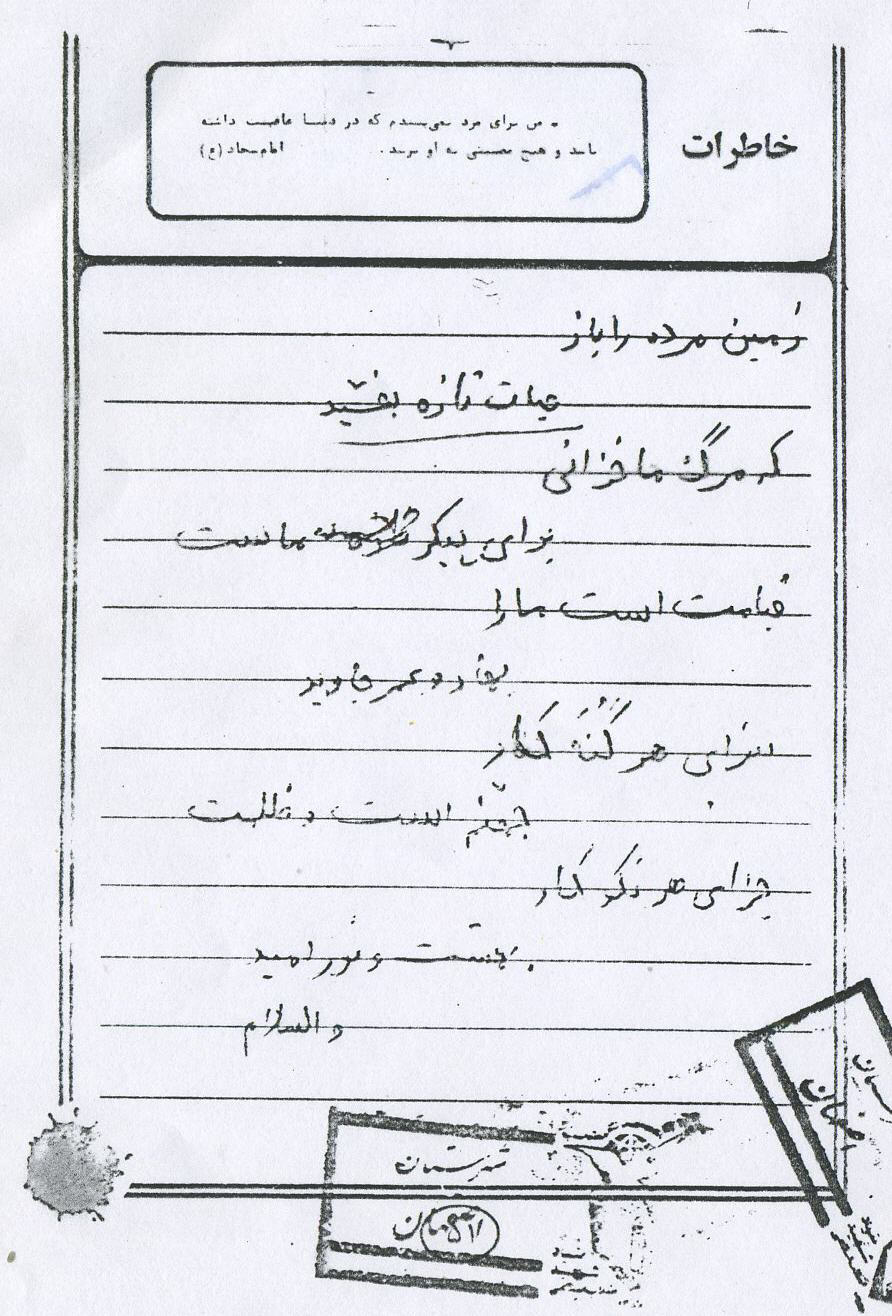 خاطرات
من برای مرد نمی‌پسندم که در دنیا عافیت داشته
باشد و هیچ مصیبتی به او نرسد.
امام سجاد (ع)
زمین مرده را باز
حیات تازه بخشید
که مرگ ما خزانی
برای پیکر ماست
قیامت است ما را
بهار و عمر جاوید
سزای هر گنه کار
جهنم است و ظلمت
جزای هر نکو کار
بهشت و نور امید
والسلام
شهرستان
اصفهان